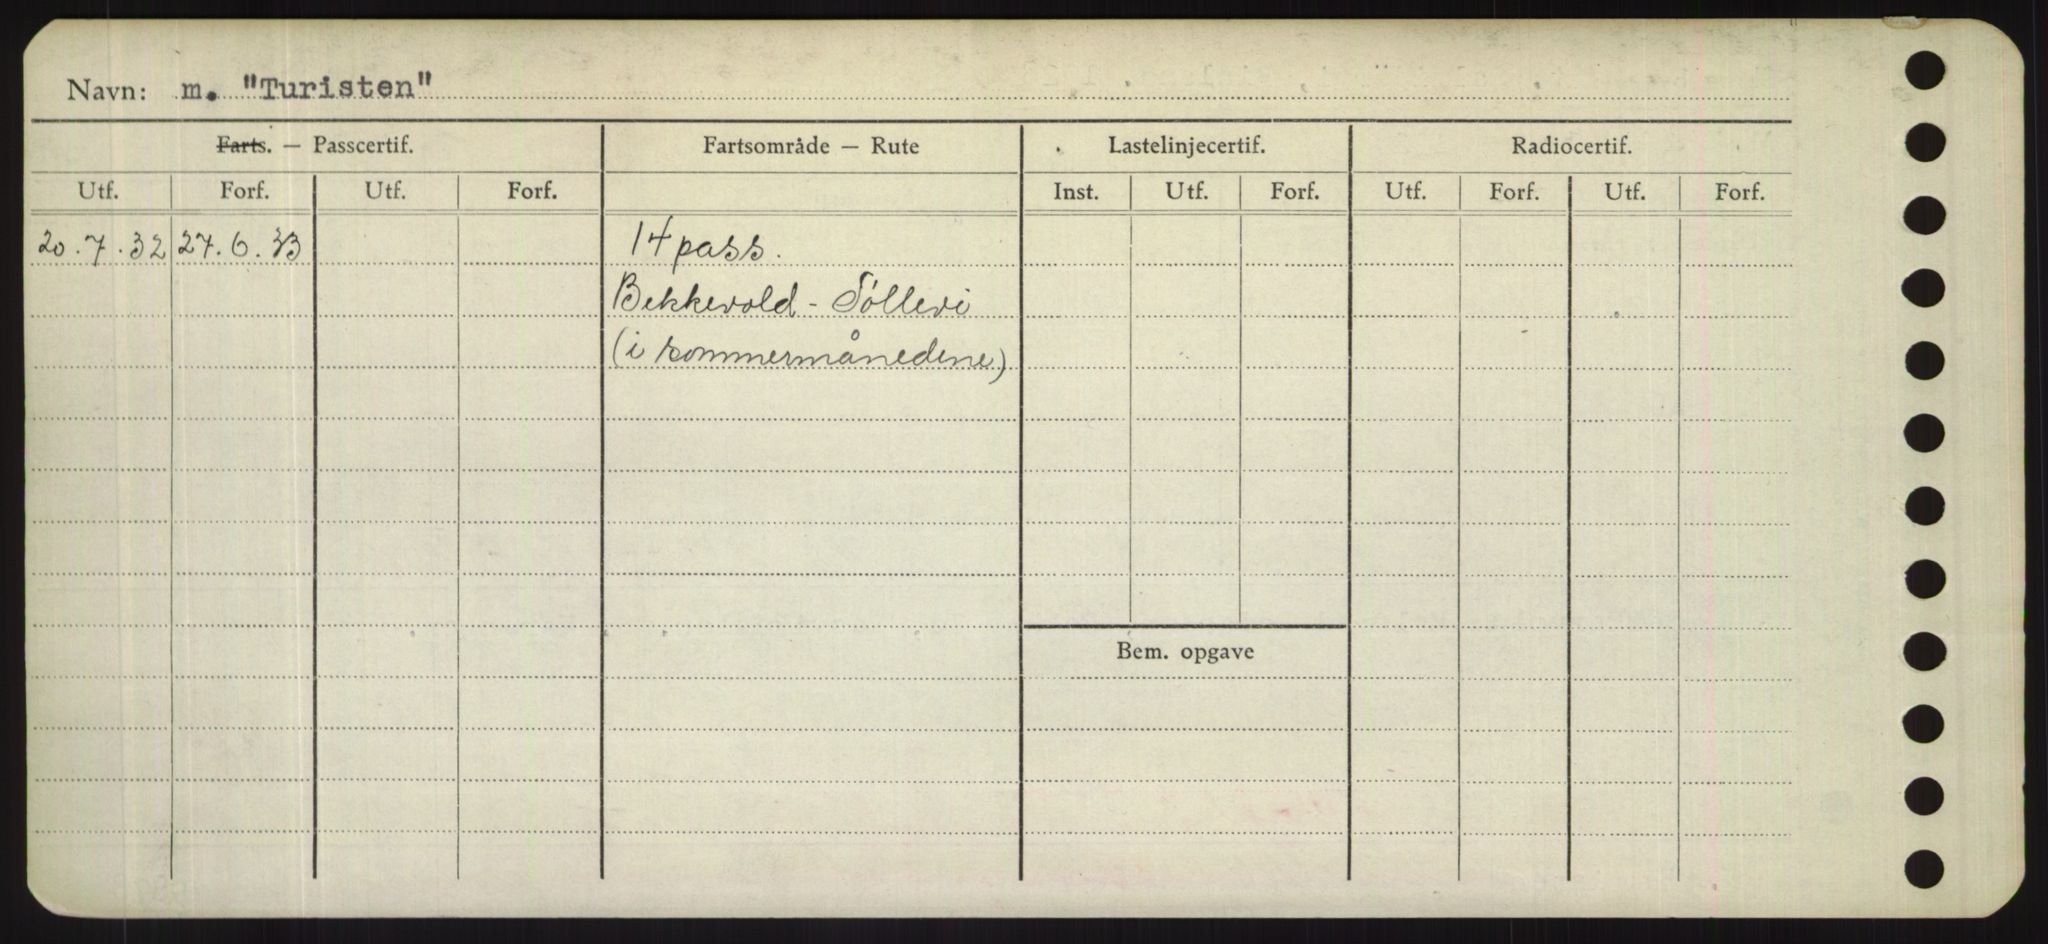 Navn: m. "Turisten"
Farts. — Passcertif. Fartsområde — Rute Lastelinjecertif. Radiocertif.
Utf. Forf. Utf. Forf. Inst. Utf. Forf. Utf. Forf. Utf. Forf.
20.7.32 27.6.33 14 pass.
Bekkevold - Söllevi
(i sommermånedene)
Bem. opgave